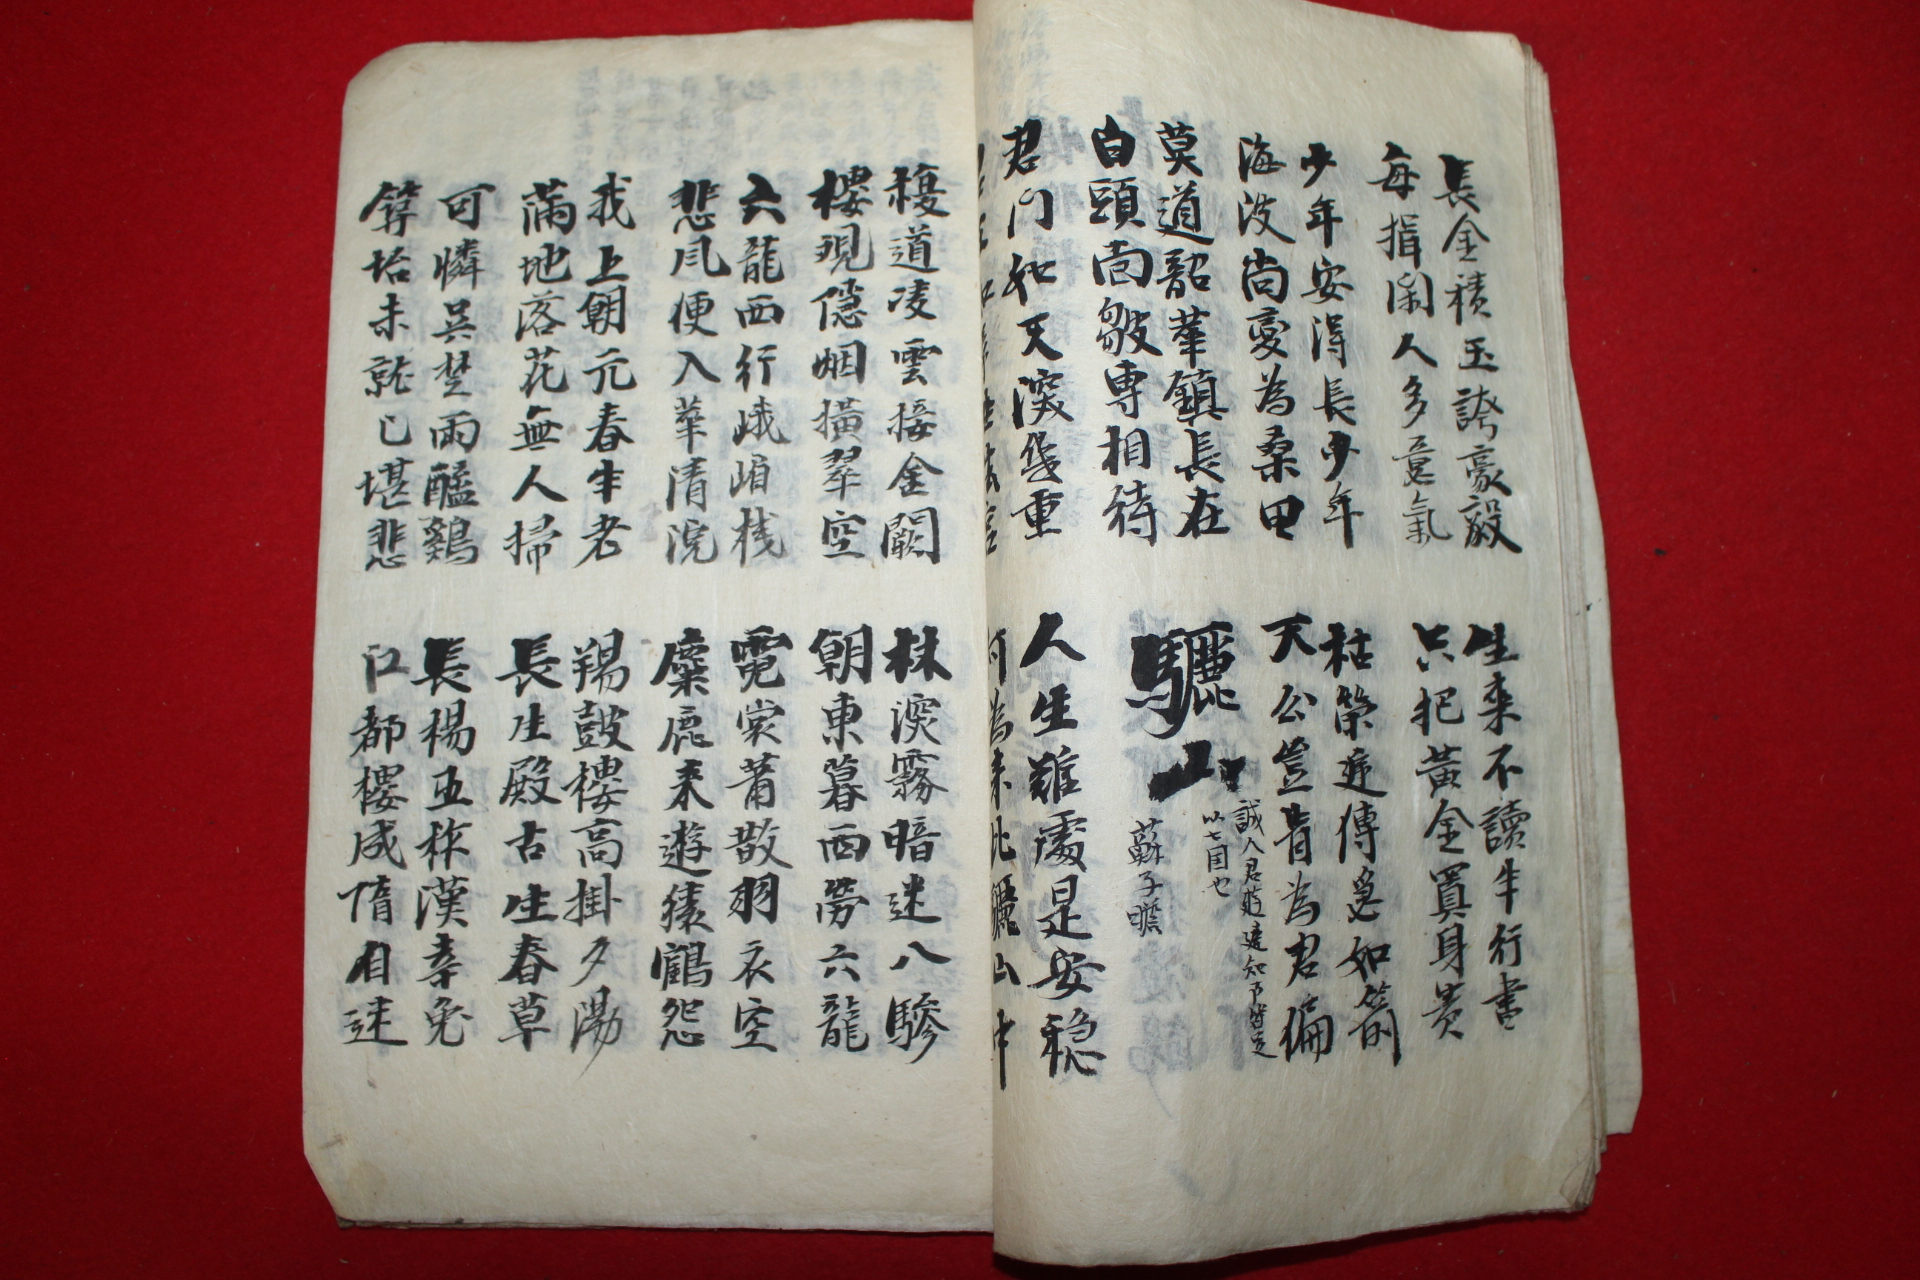 長金積玉誇豪毅
每揖閑人多意氣
生來不讀半行書
只把黃金買身貴
少年安得長少年
海波尚變為桑田
枯榮遞傳急如箭
天公豈肯為君偏
莫道韶華鎮長在
白頭面皺専相待
驪山
誠人君
以亡国也
蘇子瞻
君門如天深幾重
君王如帝坐法宮
人生難處是安穩
何為來此驪山中
複道凌雲接金闕
樓現隱烟橫翠空
林深霧暗迷八驂
朝東暮西勞六龍
六龍西行峨嵋棧
悲風便入華清院
霓裳莆散羽衣空
麋鹿來遊猿鶴怨
我上朝元春半老
滿地落花無人掃
羯鼓樓高掛夕陽
長生殿古生春草
可憐吳楚兩醯鷄
築抬未就已堪悲
長楊五柞漢幸免
江都樓成隋自迷